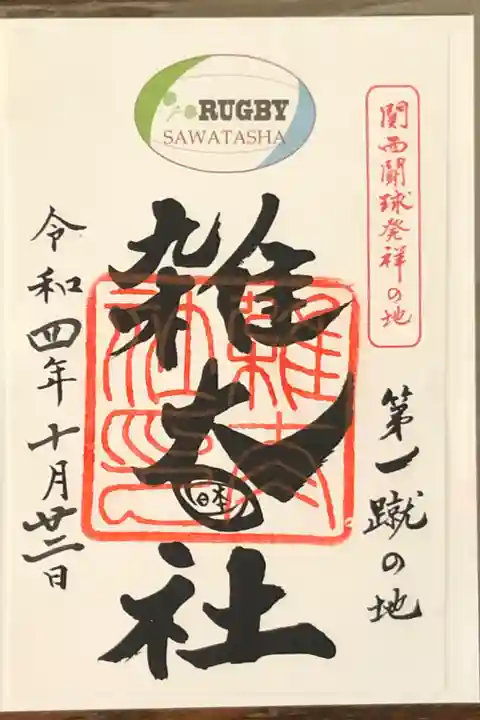 RUGBY
SAWATASHA
関西闘球発祥の地
第一蹴の地
雑太社
日本
令和四年十月廿二日